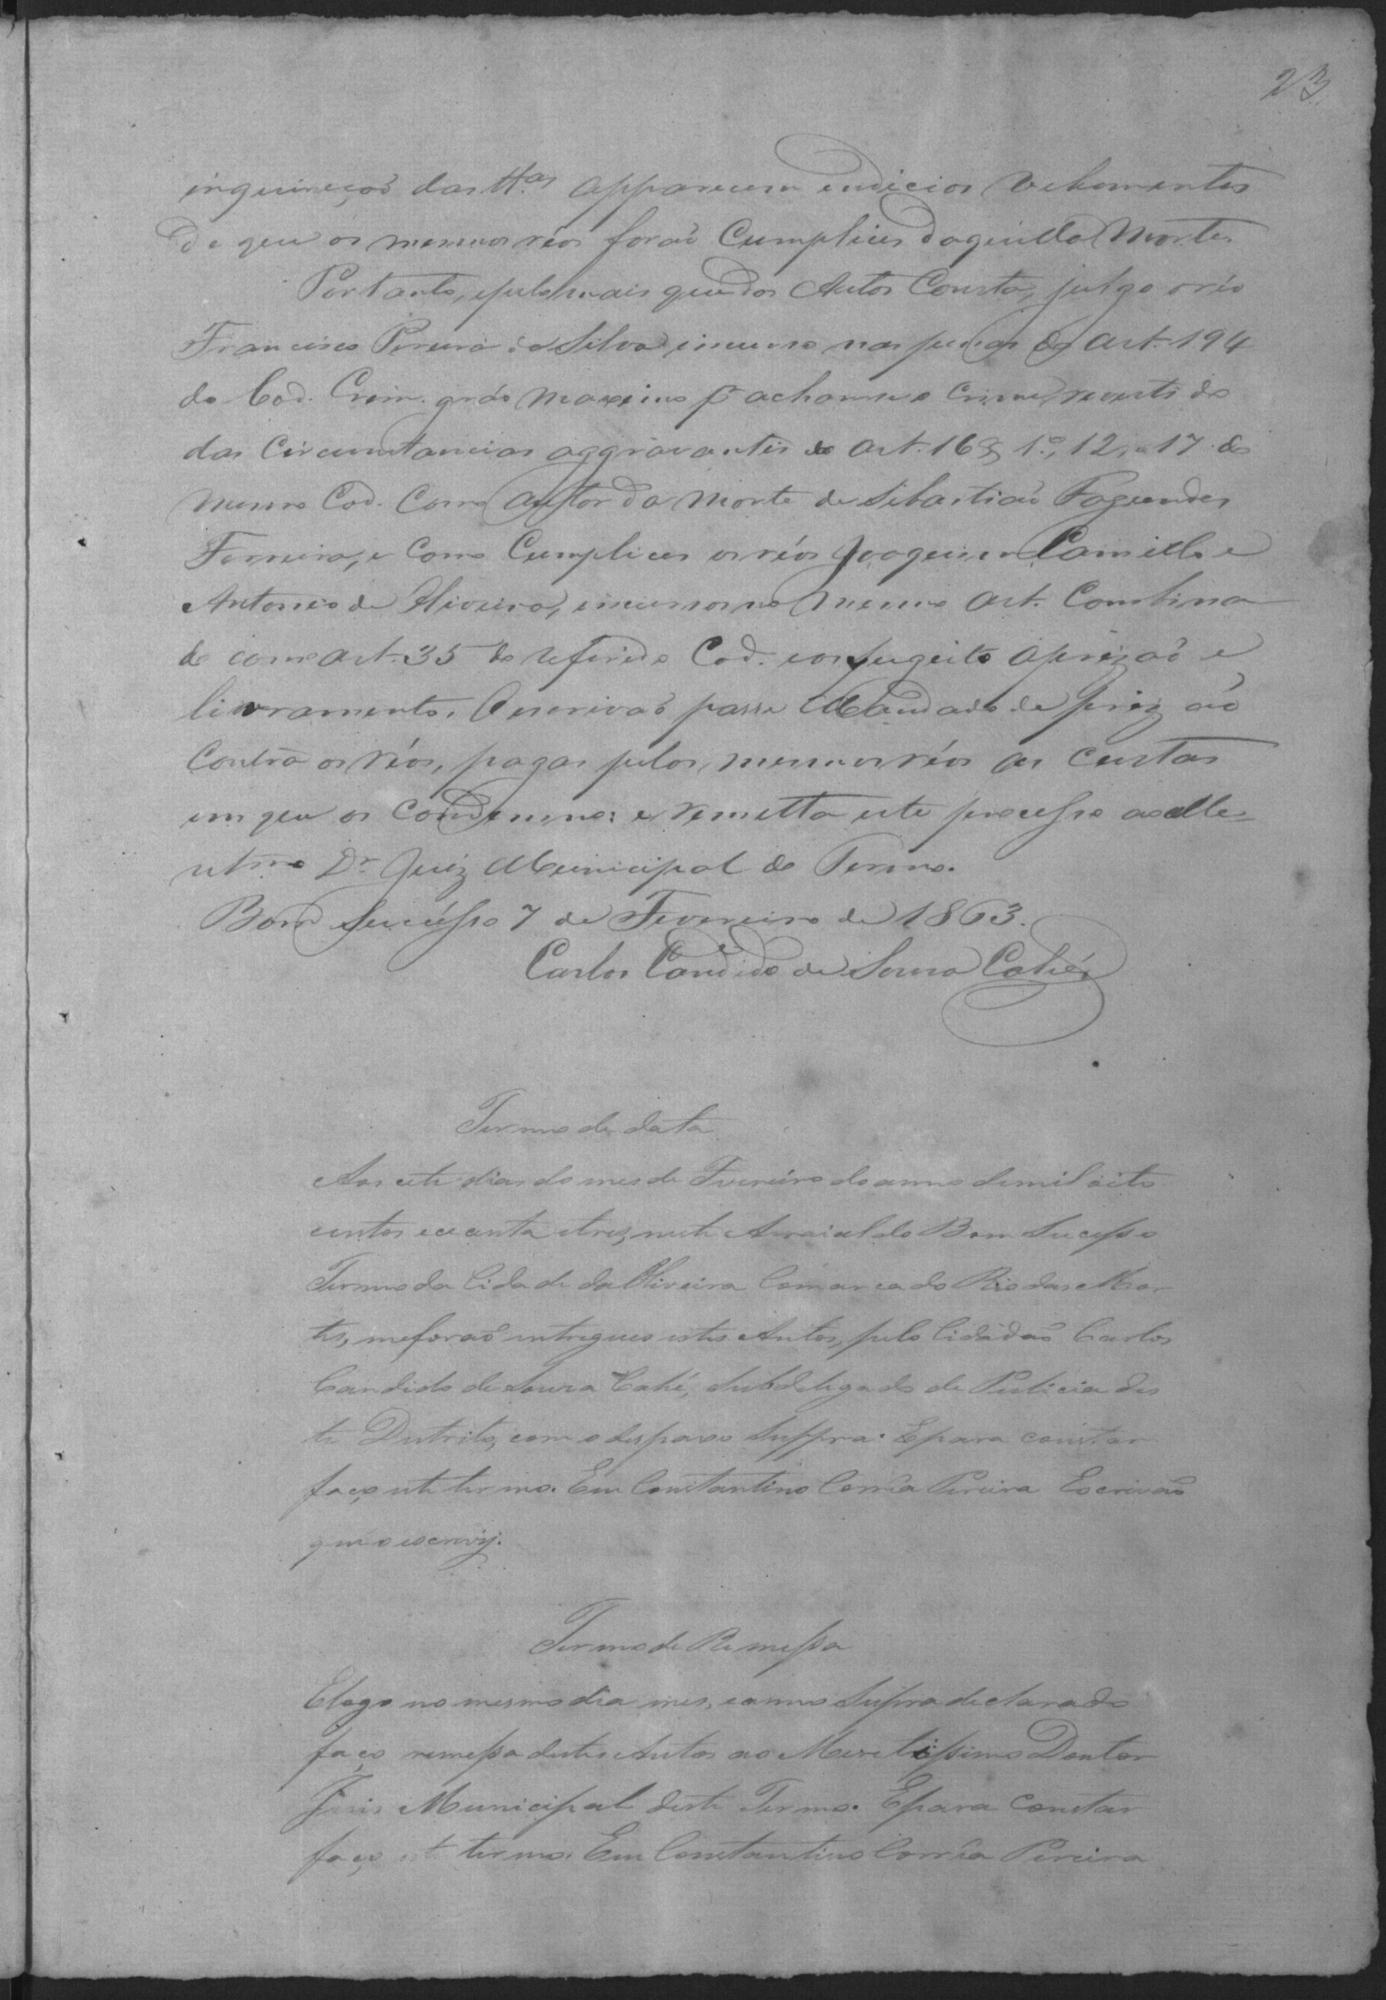 23
inquirição das tt.as apparecem indicios vehementes
de que os mesmos réos forão Cumplices daquella Morte.
Portanto, e pelo mais que dos Autos Consta, julgo o réo
Francisco Pereira da Silva incurso nas penas do Art. 194
do Cod. Crim. gráo maximo p.r achar-se o Crime revestido
das Circunstancias aggravantes do Art. 16 §§ 1.º, 12, e 17 do
mesmo Cod. Como Autor da Morte de Sebastião Fagundes
Ferreira, e Como Cumplices os réos Joaquim Camillo e
Antonio de Oliveira, incursos no mesmo Art. Combina
do com o Art. 35 do referido Cod. e os sugeito a prizão e
livramento. O escrivão passe Mandado de prizão
Contra os réos, pagas pelos mesmos réos as custas
em que os Condemno: e remetta este processo ao Me-
retmo Dr Juiz Municipal do Termo.
Bom Sucésso 7 de Fevereiro de 1863.
Carlos Candido de Souza Cahé
Termo de data
Aos sete dias do mes de Fevereiro do anno de mil oito
centos e secenta e tres, neste Arraial do Bom Sucesso
Termo da Cidade da Oliveira Comarca do Rio das Mor
tes, me forão entregues estes Autos, pelo Cidadão Carlos
Candido de Souza Cahé, Subdelegado de Policia des
te Destrito, com o despaxo Suppra. E para constar
faço este termo. Eu Constantino Corrêa Pereira Escrivão
que o escrevy.
Termo de Remessa
E logo no mesmo dia mes, e anno Supra declarado
faço remessa destes Autos ao Meretissimo Doutor
Juis Municipal deste Termo. E para constar
faço este termo. Eu Constantino Corrêa Pereira